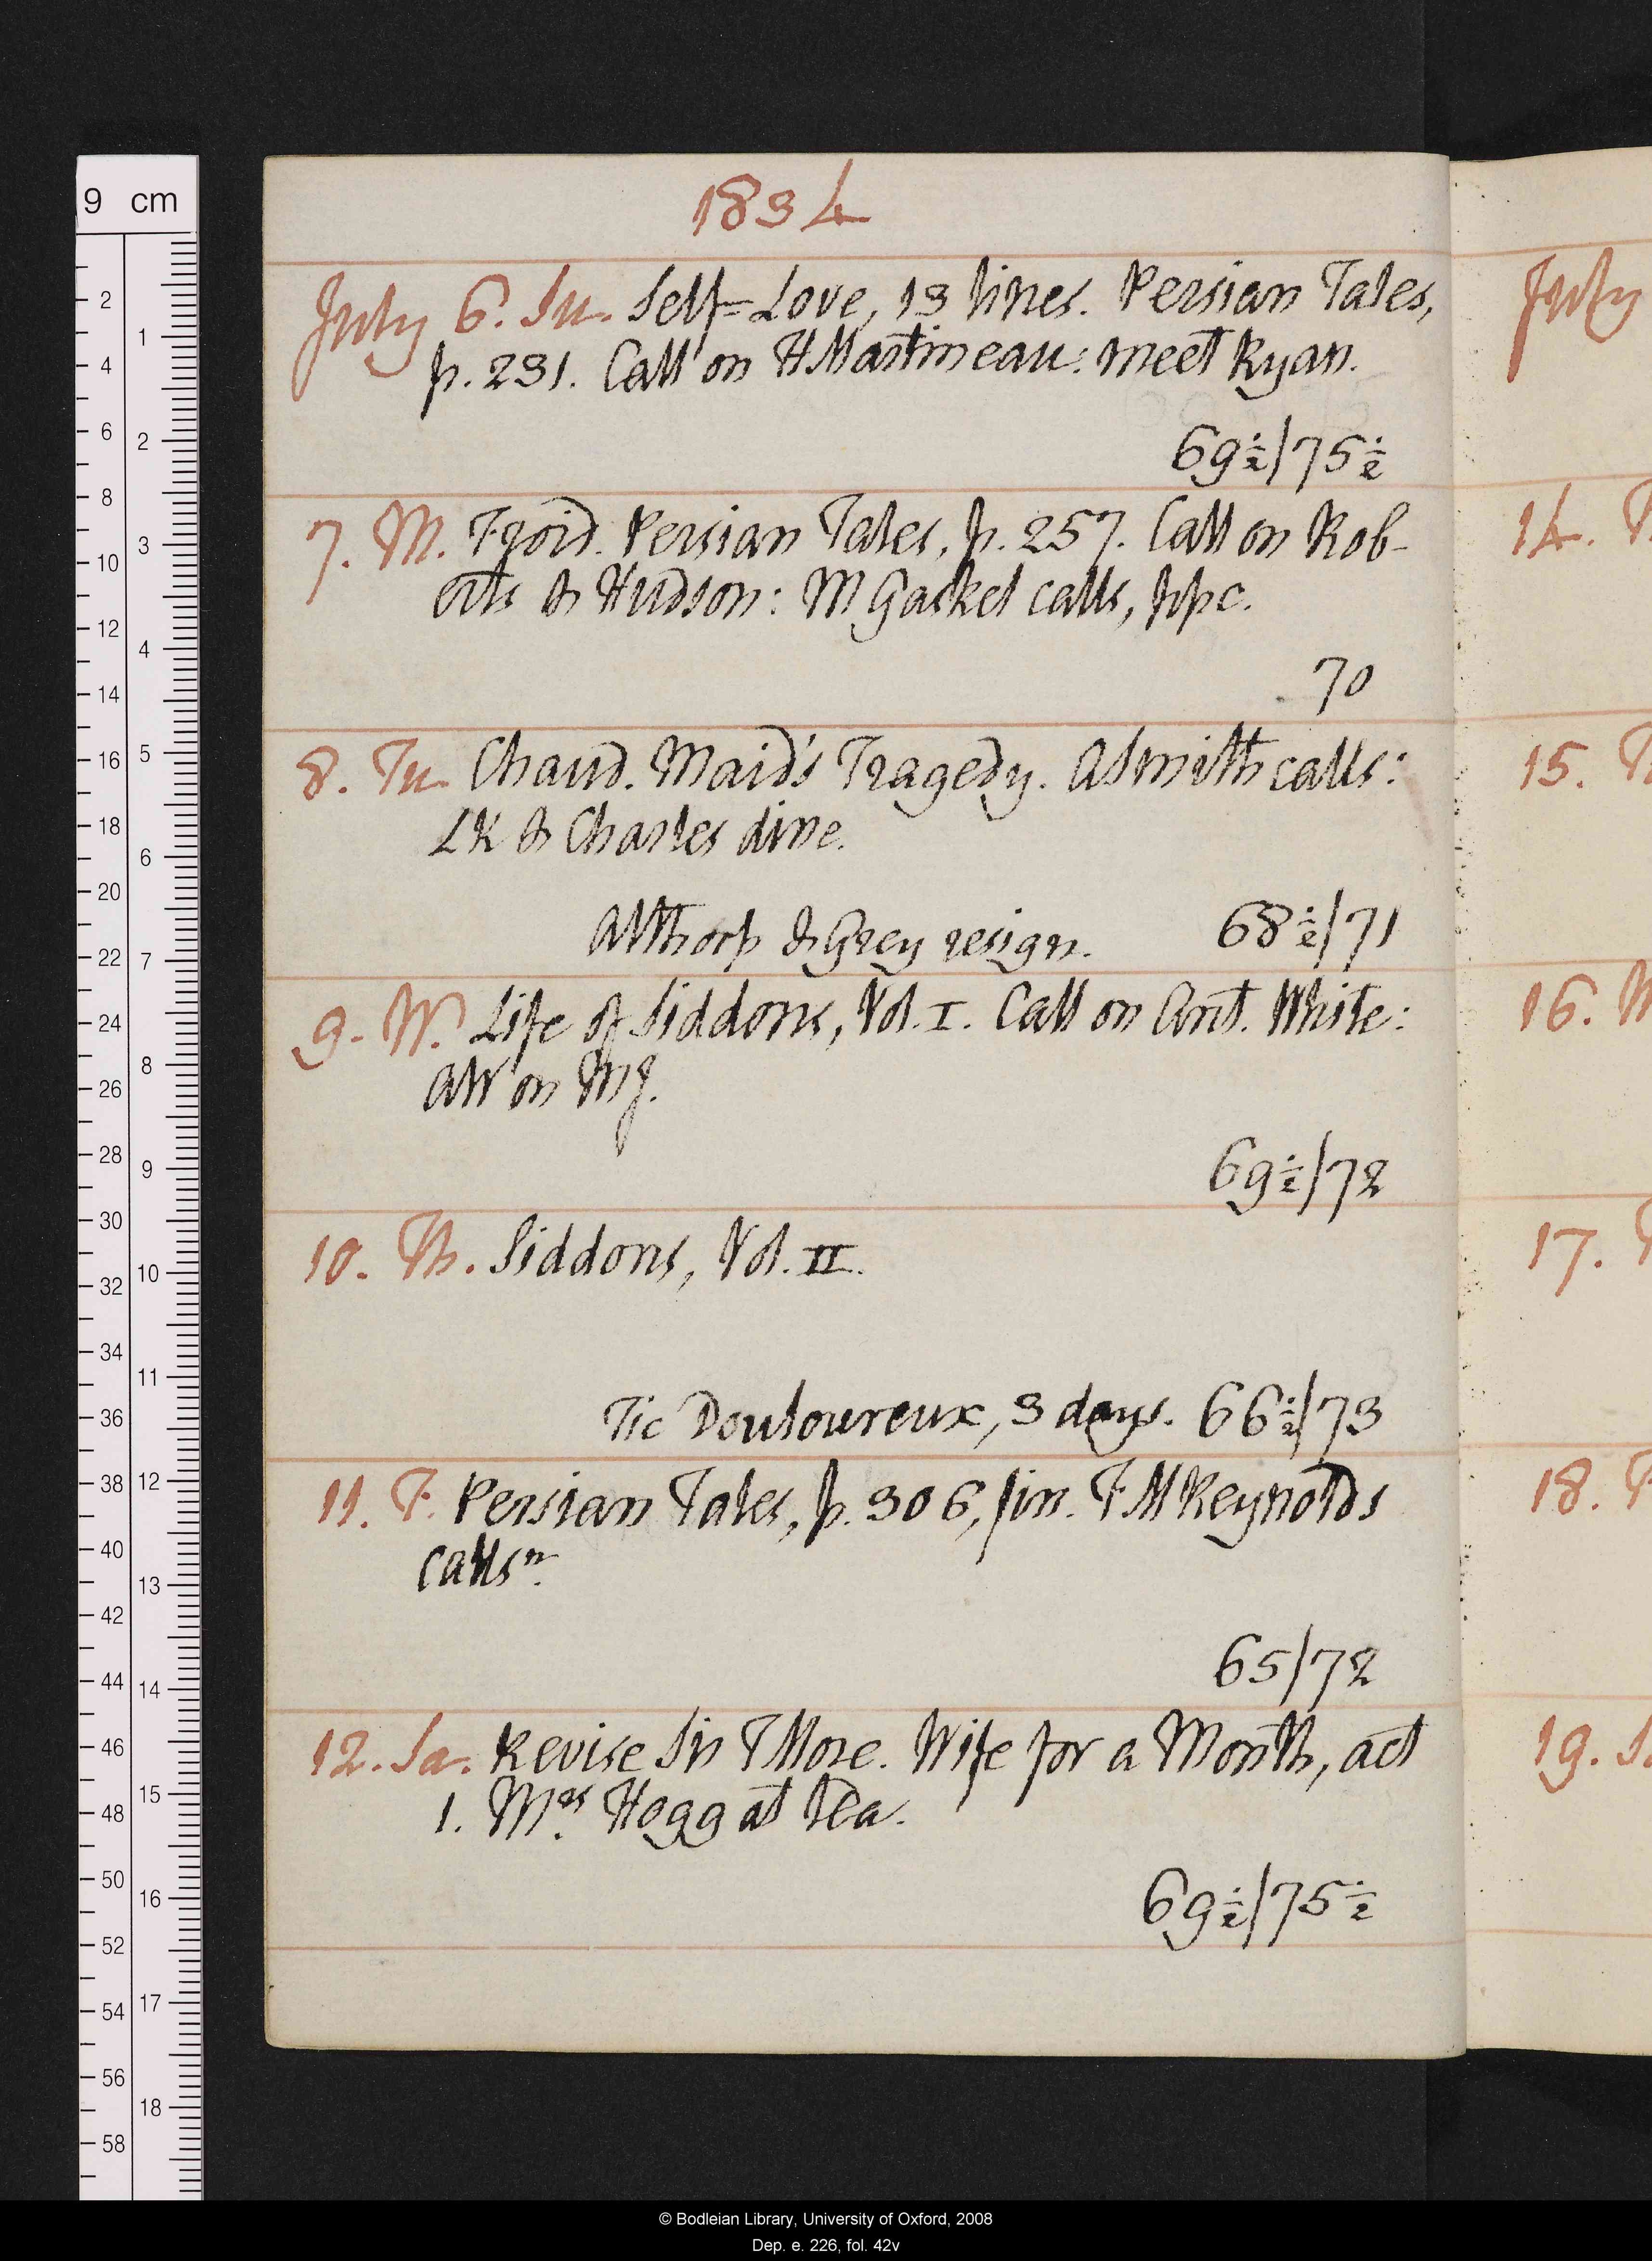 1834
July 6. Su. Self=Love, 13 lines. Persian Tales,
p. 231. Call on HMartineau: meet Ryan.
69½/75½
7. M. Froid. Persian Tales, p. 257. Call on Rob-
erts & Hudson: M Gaskel calls, ppc.
70
8. Tu. Chaud. Maid's Tragedy. ASmith calls:
LK & Charles dine.
Althorp & Grey resign. 68½/71
9. W. Life of Siddons, Vol. I. Call on Ant. White:
AW on MJ.
69½/72
10. Th. Siddons, Vol. II.
Tic Douloureux, 3 days. 66½/73
11. F. Persian Tales, p. 306, fin. FMReynolds
callsⁿ.
65/72
12. Sa. Revise Sir TMore. Wife for a Month, act
1. Mrs Hogg at tea.
69½/75½
July
14.
15.
16.
17.
18.
19.
9 cm
2
4
6
8
10
12
14
16
18
20
22
24
26
28
30
32
34
36
38
40
42
44
46
48
50
52
54
56
58
1
2
3
4
5
6
7
8
9
10
11
12
13
14
15
16
17
18
© Bodleian Library, University of Oxford, 2008
Dep. e. 226, fol. 42v